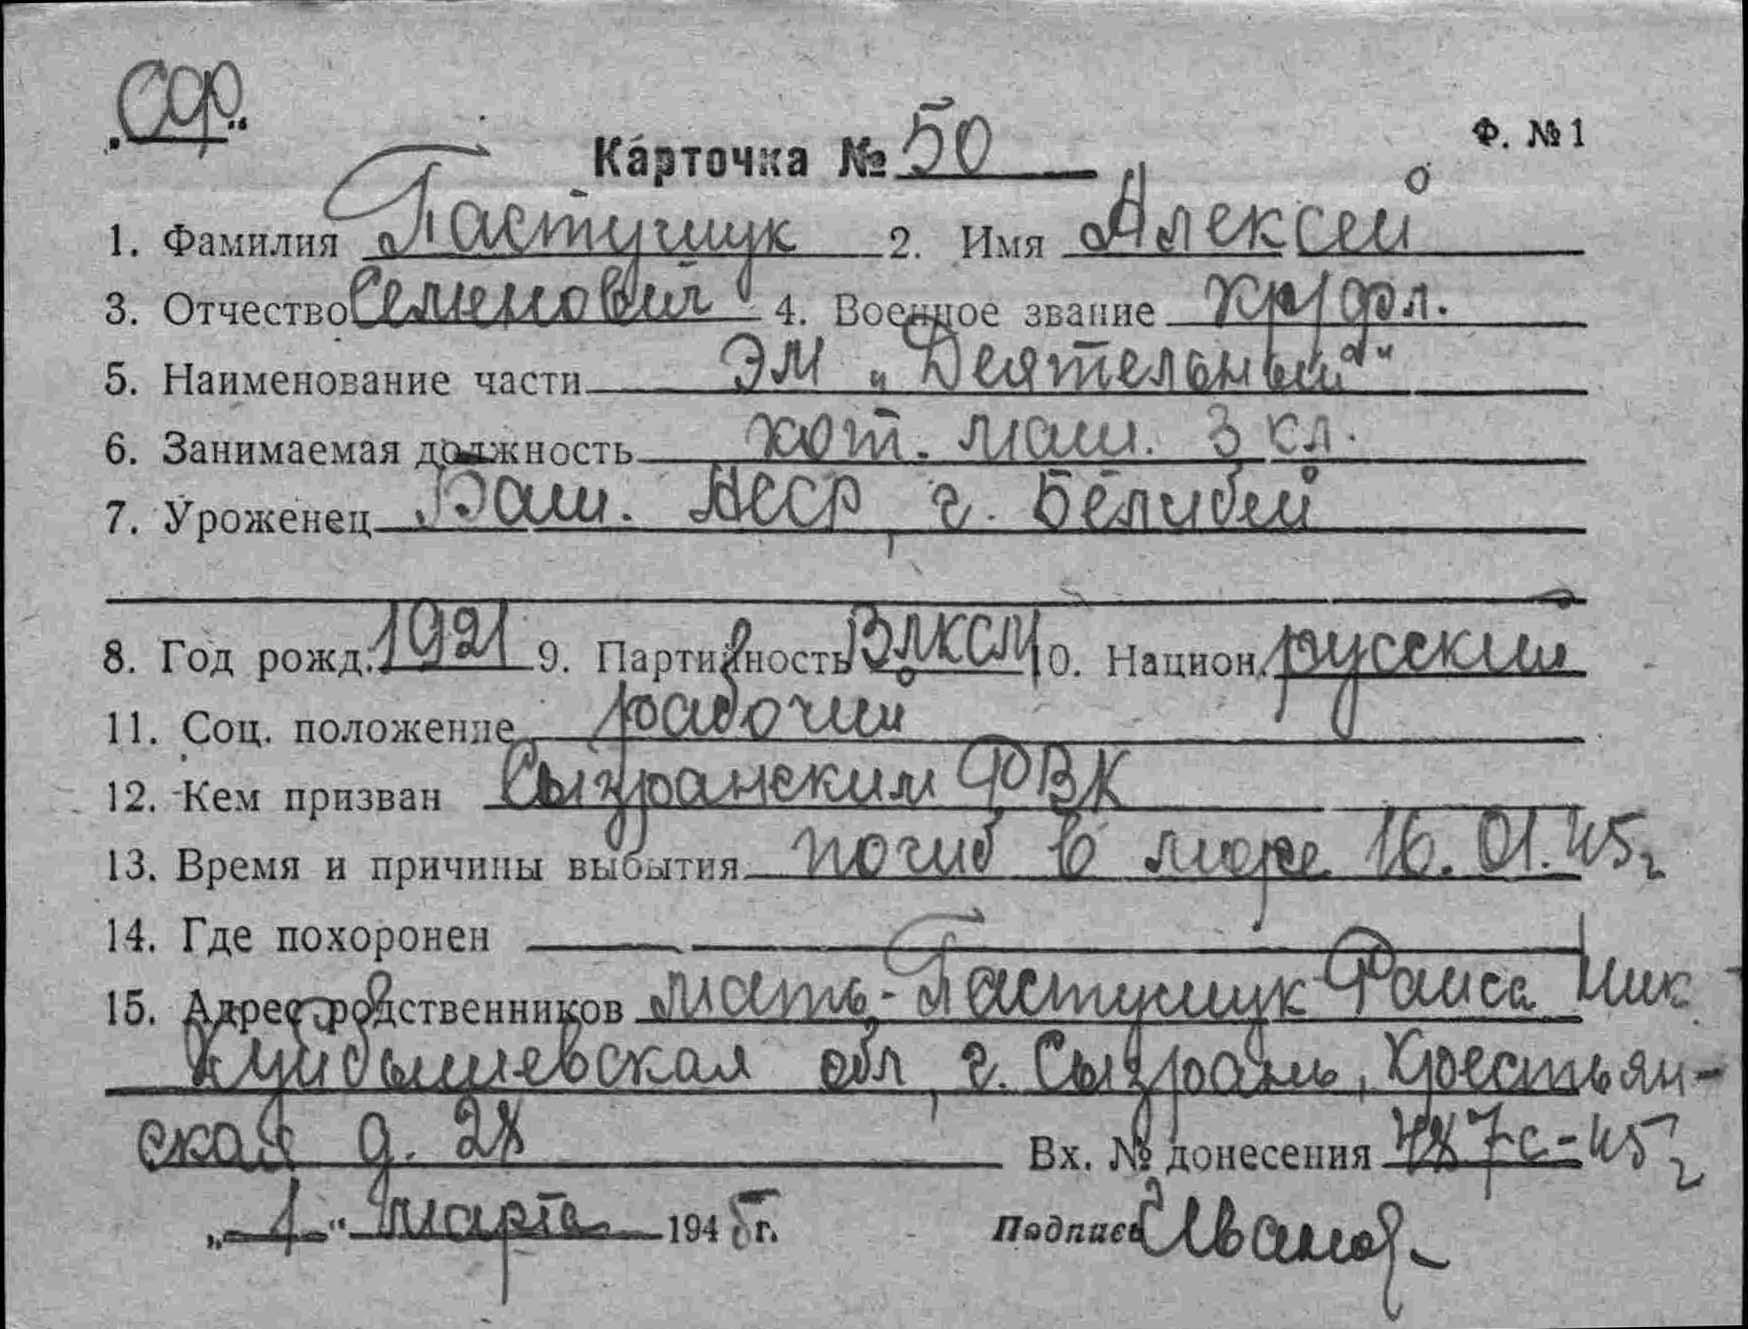 „СФ“
Карточка № 50 Ф. № 1
1. Фамилия Пастушук 2. Имя Алексей
3. Отчество Семенович 4. Военное звание кр/фл.
5. Наименование части ЭМ „Деятельный“
6. Занимаемая должность кот. маш. 3 кл.
7. Уроженец Баш. АССР, г. Белибей
8. Год рожд. 1921 9. Партийность ВЛКСМ 10. Национ. русский
11. Соц. положение рабочий
12. Кем призван Сызранским РВК
13. Время и причины выбытия погиб в море 16.01.45г
14. Где похоронен
15. Адрес родственников мать-Пастушук Раиса Ник
Куйбышевская обл, г. Сызрань, Крестьян-
ская д. 28
Вх. № донесения 487с-45г
„1“ марта 1945 г. Подпись Иванов